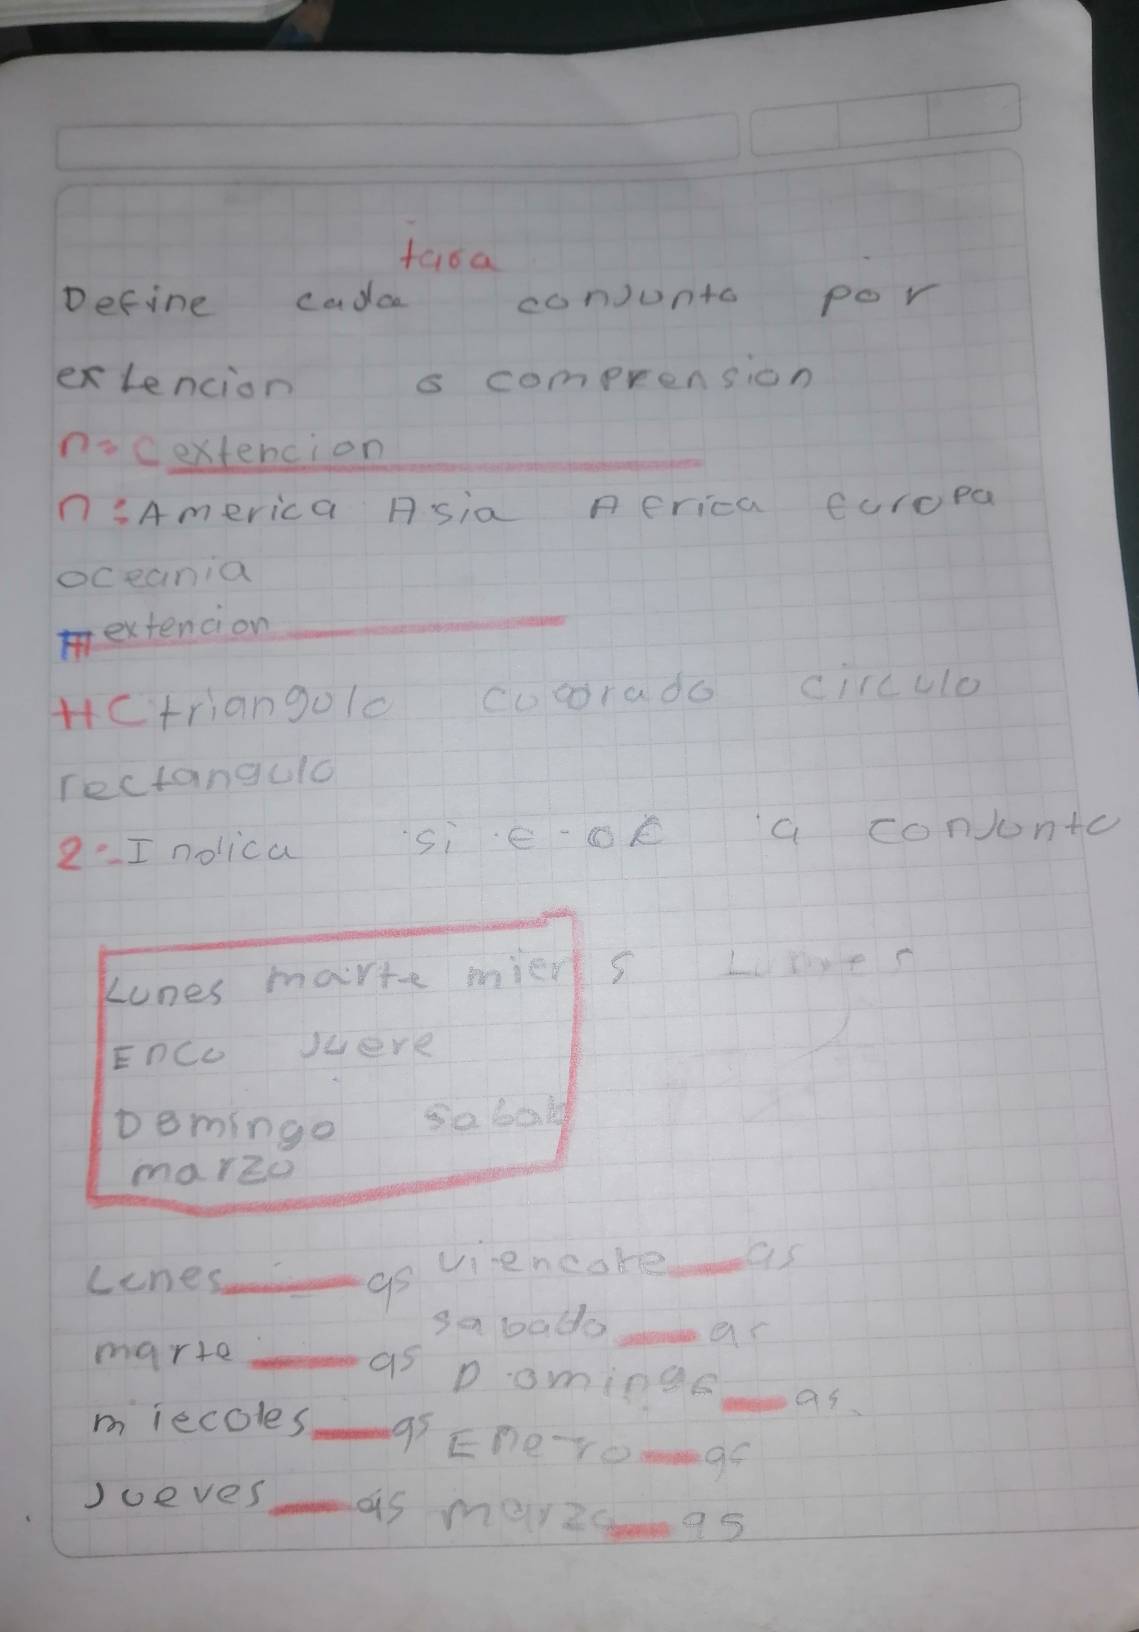 taroa
Define cada conjunto por
extencion o comprension
n=C extencion
n:America Asia Africa europa
oceania
extencion
HC triangulo cuadrado circulo
rectangulo
2.-Indica si € o € a conjunto
Lunes marte mier s Lunes
Enco Juere
Domingo sabab
marzo
Lenes as viencore as
sabado as
marte as Domingo as
miecoles as Enero as
Jueves as marzo as